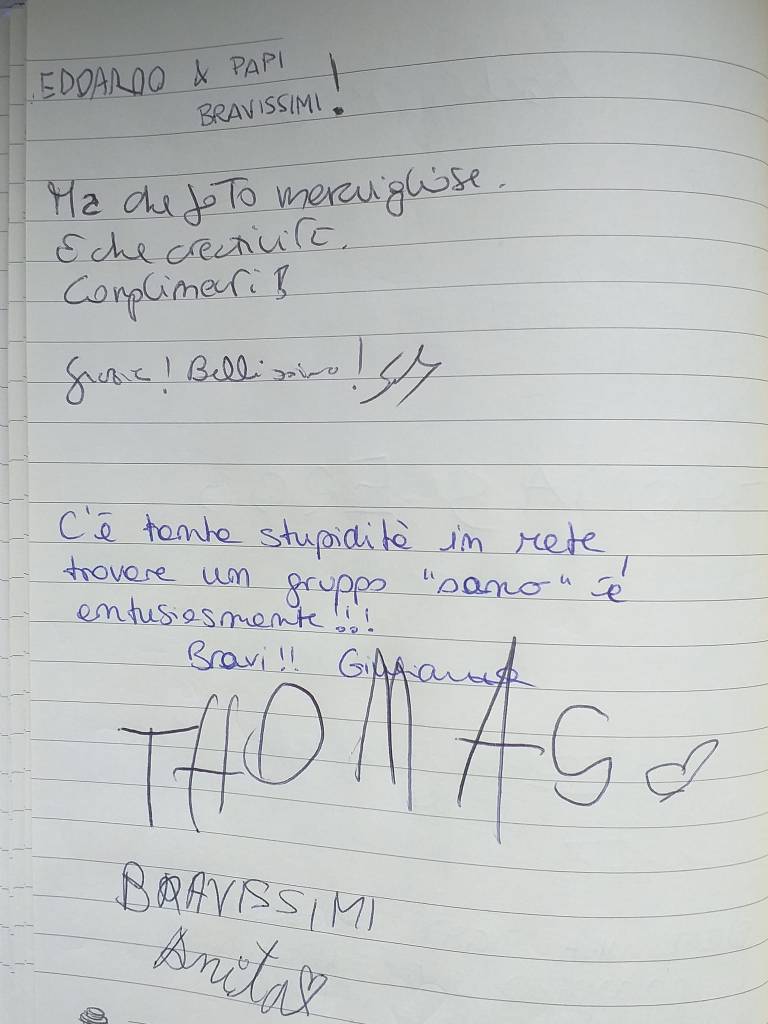 EDOARDO & PAPI
BRAVISSIMI!
Ma che foto meravigliose.
E che creatività.
Complimenti!
Grazie! Bellissimo!
C'è tante stupidità in rete,
trovare un gruppo "sano" è
entusiasmante!!!
Bravi!!
THOMAS
BRAVISSIMI
Anita